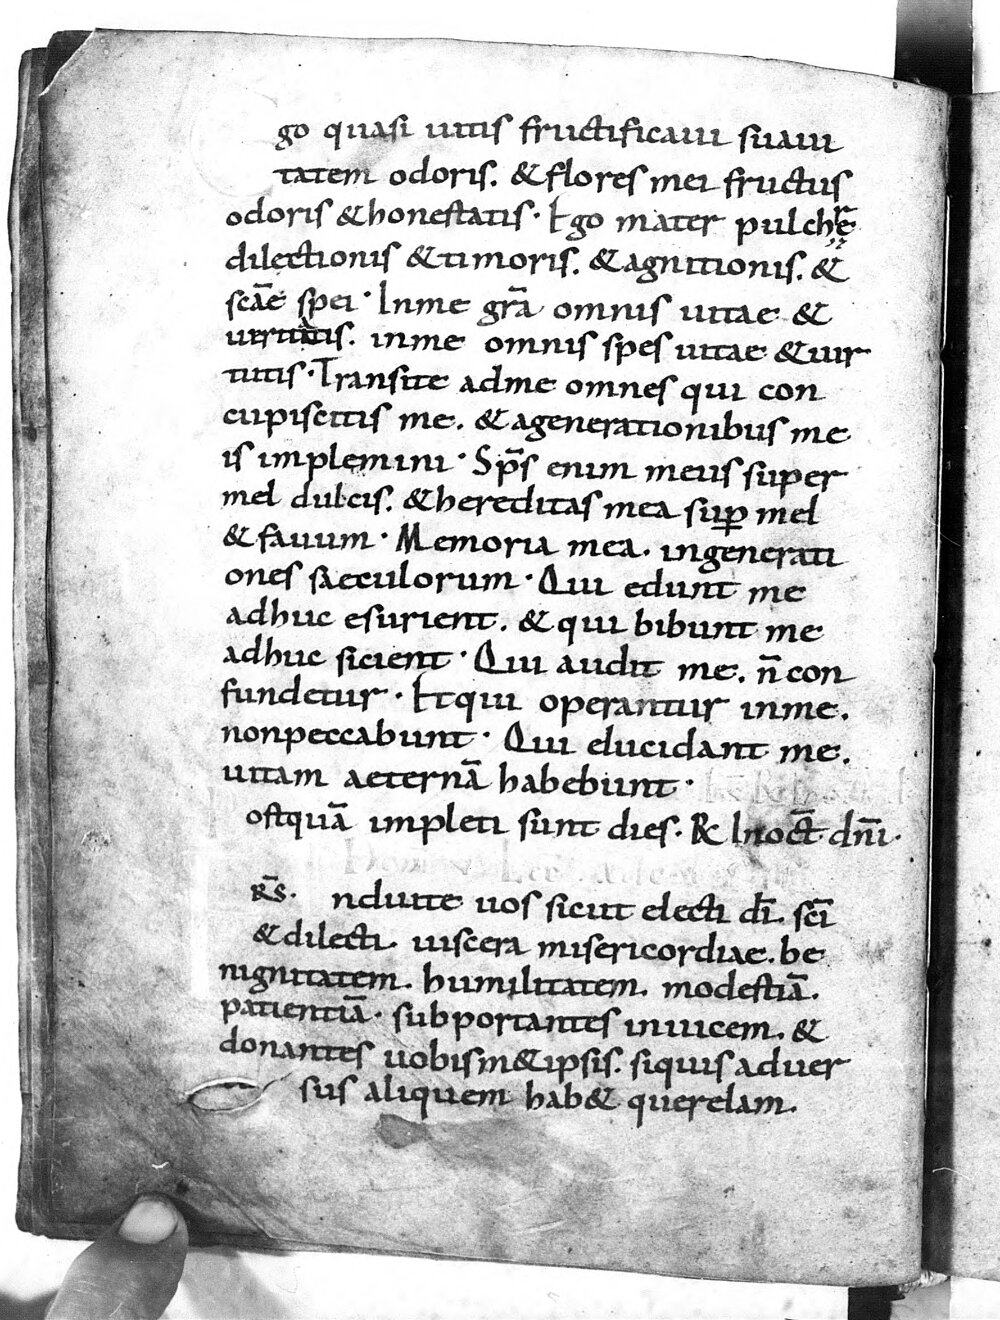 go quasi uitis fructificaui suaui
tatem odoris. & flores mei fructus
odoris & honestatis · Ego mater pulchrę
dilectionis & timoris. & agnitionis. &
scāe spei · Inme gr̄a omnis uitae &
ueritatis. inme omnis spes uitae & uir
tutis · Transite adme omnes qui con
cupiscitis me. & agenerationibus me
is implemini · Sp̄s enim meus super
mel dulcis. & hereditas mea suꝑ mel
& fauum · Memoria mea. ingenerati
ones saeculorum · Qui edunt me
adhuc esurient. & qui bibunt me
adhuc sicient · Qui audit me. n̄ con
fundetur · Et qui operantur inme.
nonpeccabunt · Qui elucidant me.
uitam aeternā habebunt ·
ostquā impleti sunt dies. ℞ Inoct̄ dn̄i.
R̄s. nduite uos sicut electi dī. sc̄i
& dilecti. uiscera misericordiae. be
nignitatem. humilitatem. modestiā.
patientiā. subportantes inuicem. &
donantes uobism&ipsis. siquis aduer
sus aliquem hab& querelam.